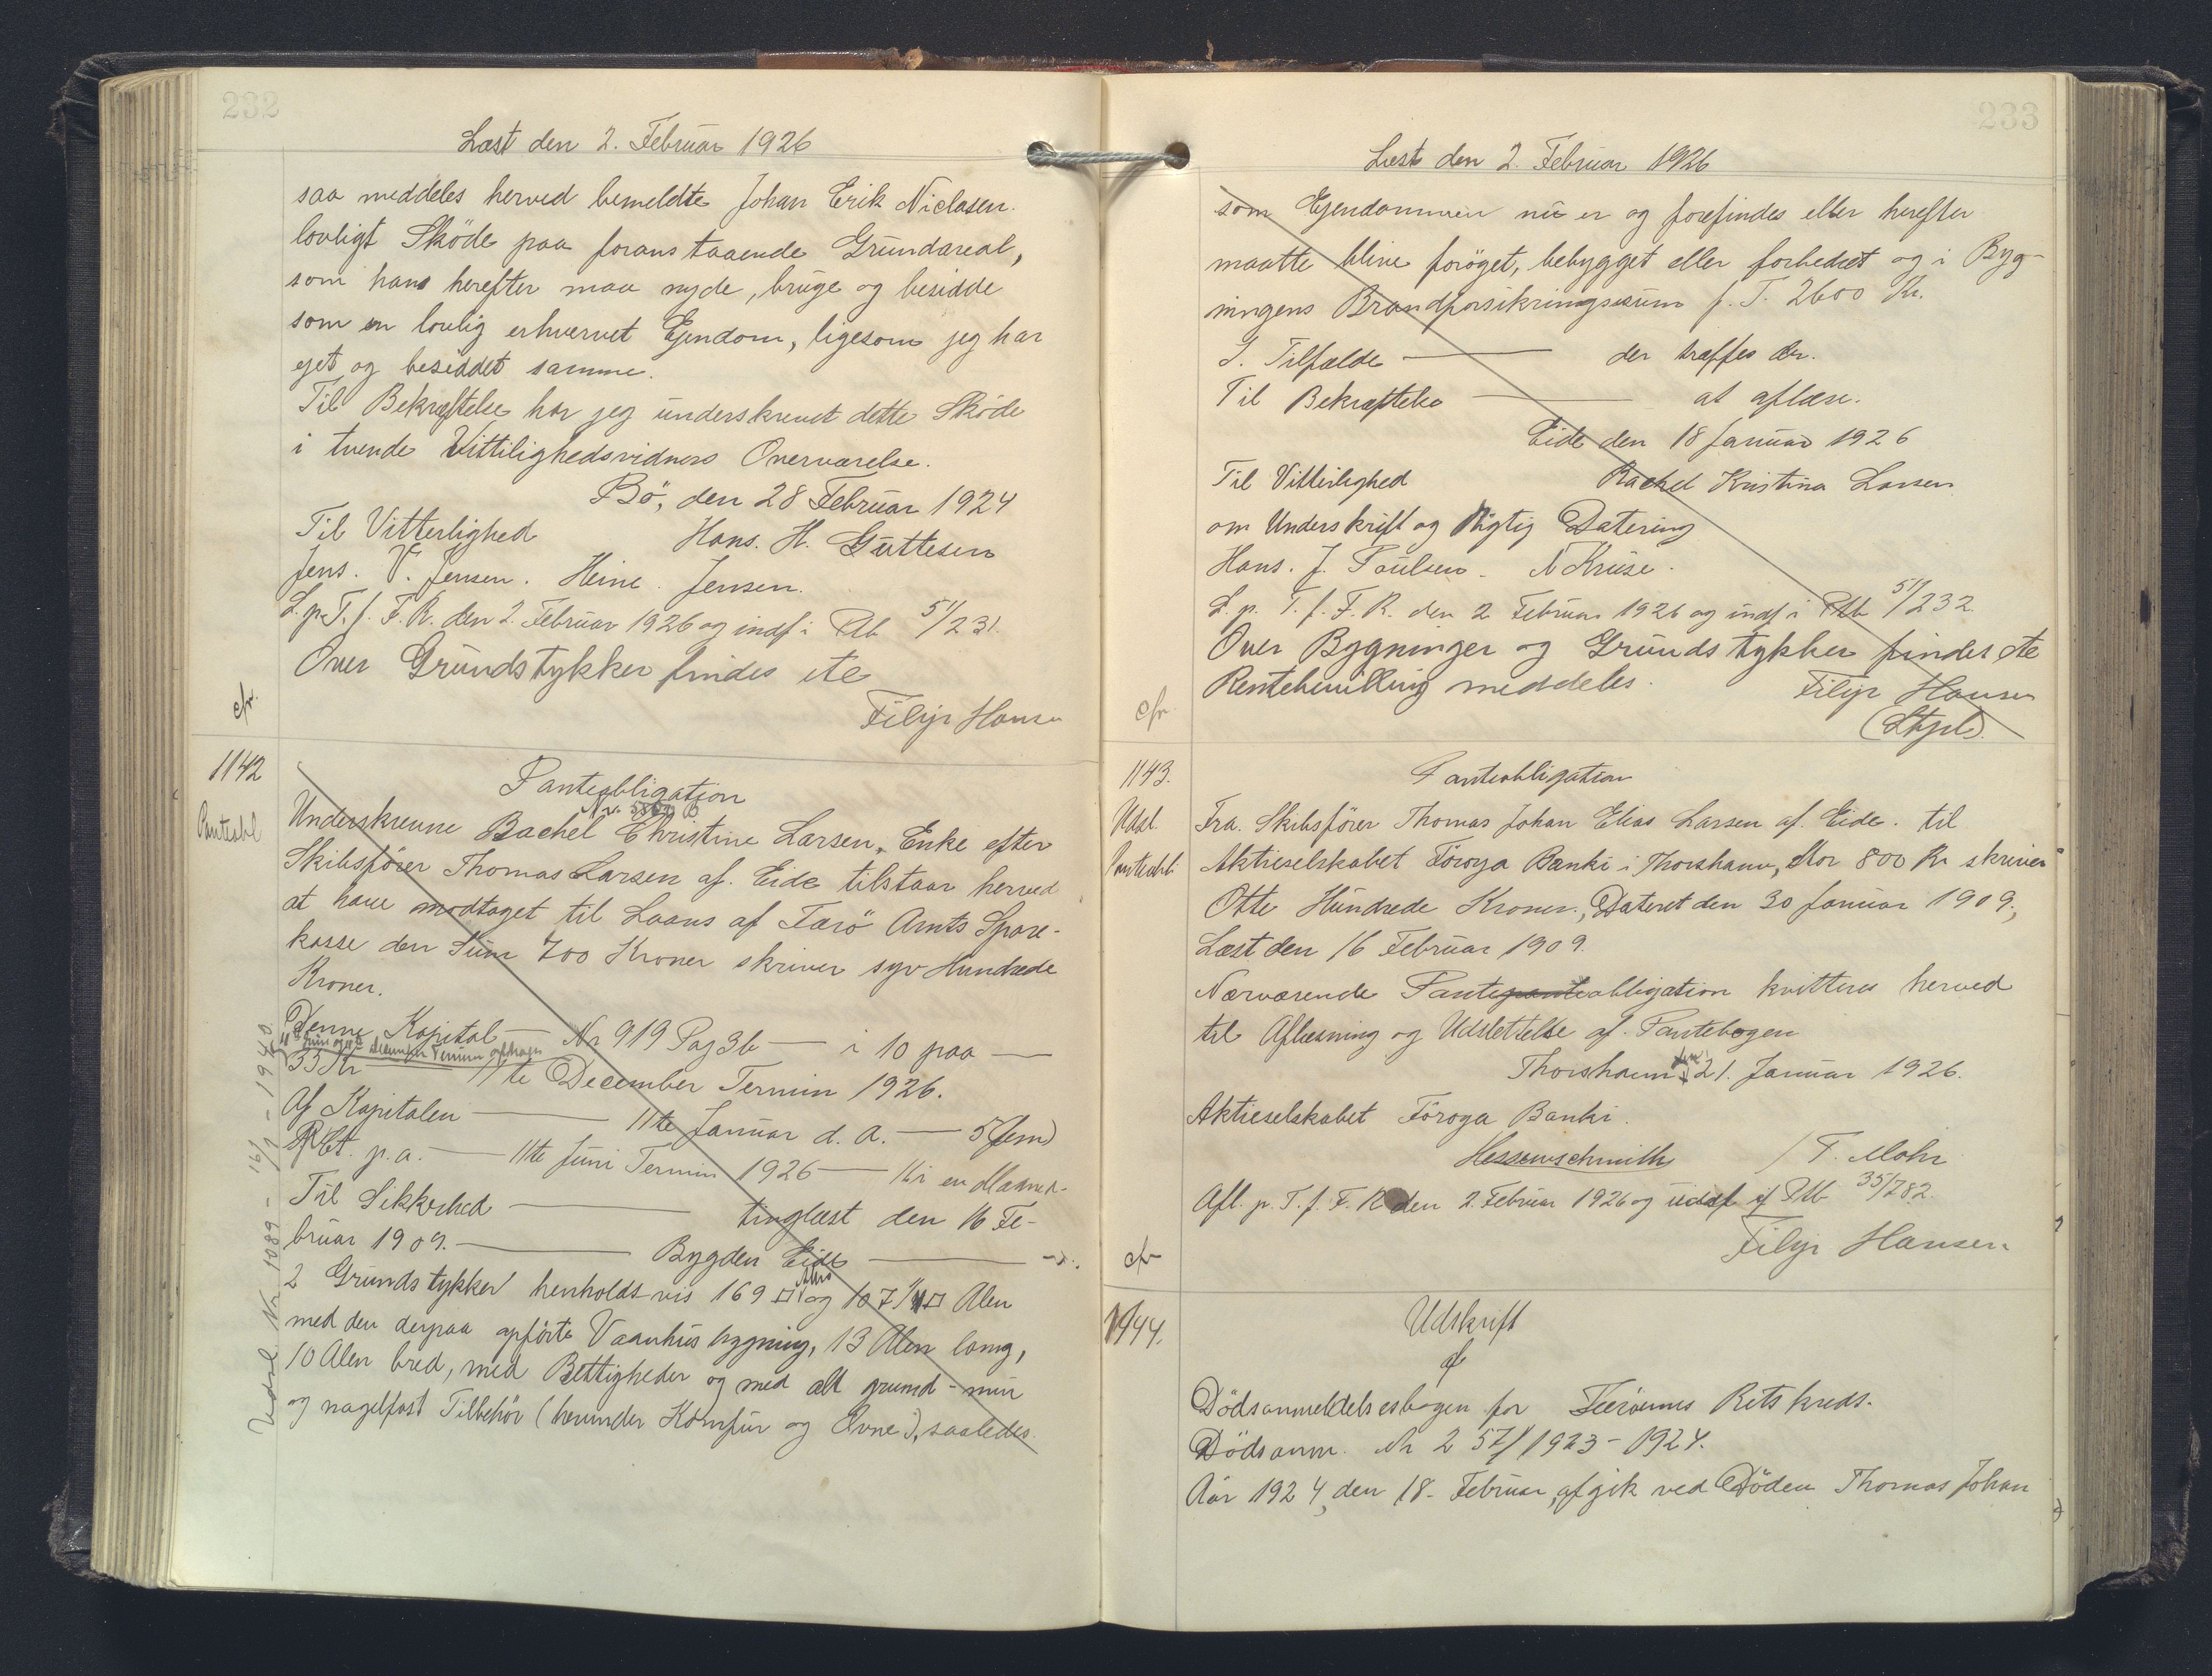 232
Læst den 2. Februar 1926
saa meddeles herved bemeldte Johan Erik Niclasen.
lovligt Sköde paa foranstaaende Grundareal,
som hans herefter maa nyde, bruge og besidde
som en lovlig erhvervet Ejendom, ligesom jeg har
ejet og besiddet samme.
Til Bekræftelse har jeg underskrevet dette Sköde
i tvende Vittilighedsvidners Overværelse.
Bö, den 28 Februar 1924
Til Vitterlighed Hans. H. Guttesen
Jens. V. Jensen. Heine. Jensen.
L. p. T. f. F. R. den 2. Februar 1926 og indf i Pb 51/231.
Over Grundstykker findes ete
cfr. Filip Hansen
1142 Panteobligation
Panteobl
Underskrevne Rachel Christine Larsen, Enke efter
Skibsfører Thomas Larsen af. Eide tilstaar herved
at have modtaget til Laans af Færö Amts Spare-
kasse den Sum 700 Kroner skriver syv Hundrede
Kroner.
Denne Kapital — Nr 919 Pag 3b — i 10 paa —
35 Kr — 11te December Termin 1926.
Af Kapitalen — 11te Januar d. A. — 5 (fem)
P Ct. p.a. — 11te Juni Termin 1926 —
Til Sikkerhed — tinglæst den 16 Fe-
bruar 1909. — Bygden Eide —
2 Grundstykker henholdsvis 169 □ Alen og 107 1/4 □ Alen
med den derpaa opførte Vaanhusbygning, 13 Alen lang,
10 Alen bred, med Rettigheder og med alt grund- mur
og nagelfast Tilbehör (herunder Komfur og Ovne), saaledes
Udsl. Nr 1089 - 16/1 - 1940
233
Læst den 2. Februar 1926
som Ejendommen nu er og forefindes eller herefter
maatte blive foröget, bebygget eller forbedret og i Byg-
ningens Brandforsikringssum p. T. 2600 Kr.
I. Tilfælde — der træffes er.
Til Bekræftelse — at aflæse.
Eide den 18 Januar 1926
Til Vitterlighed Rachel Kristina Larsen
om Underskrift og Rigtig Datering
Hans. J. Poulsen. N Kruse.
L. p. T. f. F. R. den 2 Februar 1926 og indf i Ptb 51/232
Over Bygninger og Grundstykker findes ete
Rentebevilling meddeles. Filip Hansen
cfr. (Stpl).
1143. Panteobligation
Udsl. Fra. Skibsfører Thomas Johan Elias Larsen af. Eide. til
Panteobl. Aktieselskabet Föroya Banki i Thorshavn, Stor 800 Kr skriver
Otte Hundrede Kroner., Dateret den 30 Januar 1909.,
Læst den 16 Februar 1909.
Nærværende Pantepanteobligation kvitteres herved
til Aflæsning og Udslettelse af. Pantebogen
Thorshavn den 21. Januar 1926.
Aktieselskabet Föroya Banki.
Hessenschmith / T. Mohr
Afl. p. T. f. F. R den 2. Februar 1926 og udsl af Ptb 35/782.
cfr Filip Hansen
1144. Udskrift
af
Dödsanmeldelsesbogen for Færöernes Retskreds.
Dödsanm. Nr 257/1923-1924.
Aar 1924, den 18. Februar, afgik ved Döden Thomas Johan